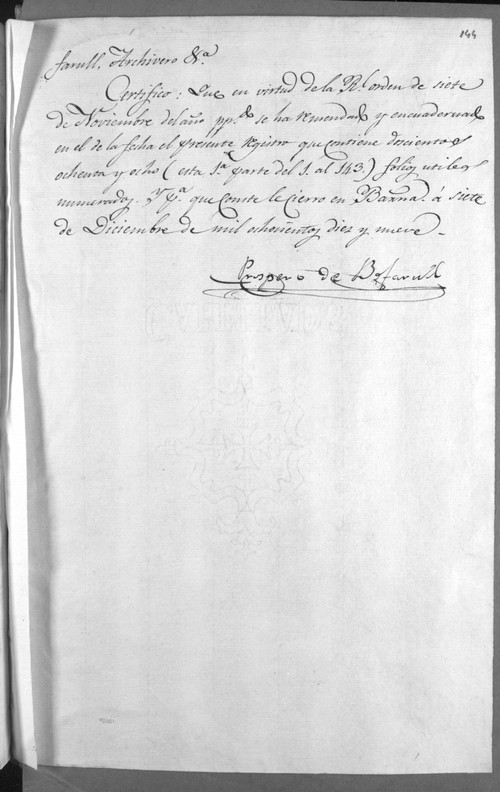 144
farull, Archivero &.ª
Certifico: Que en virtud de la R.l orden de siete
de Noviembre del año pp.do se ha remendado y encuadernado
en el de la fecha el presente registro que contiene doscientos
ochenta y ocho (esta 1.ª parte del 1. al 143.) folios utiles
numerados. Y p.ª que Conste le Cierro en Barna. á siete
de Diciembre de mil ochocientos diez y nueve.
Prospero de Bofarull